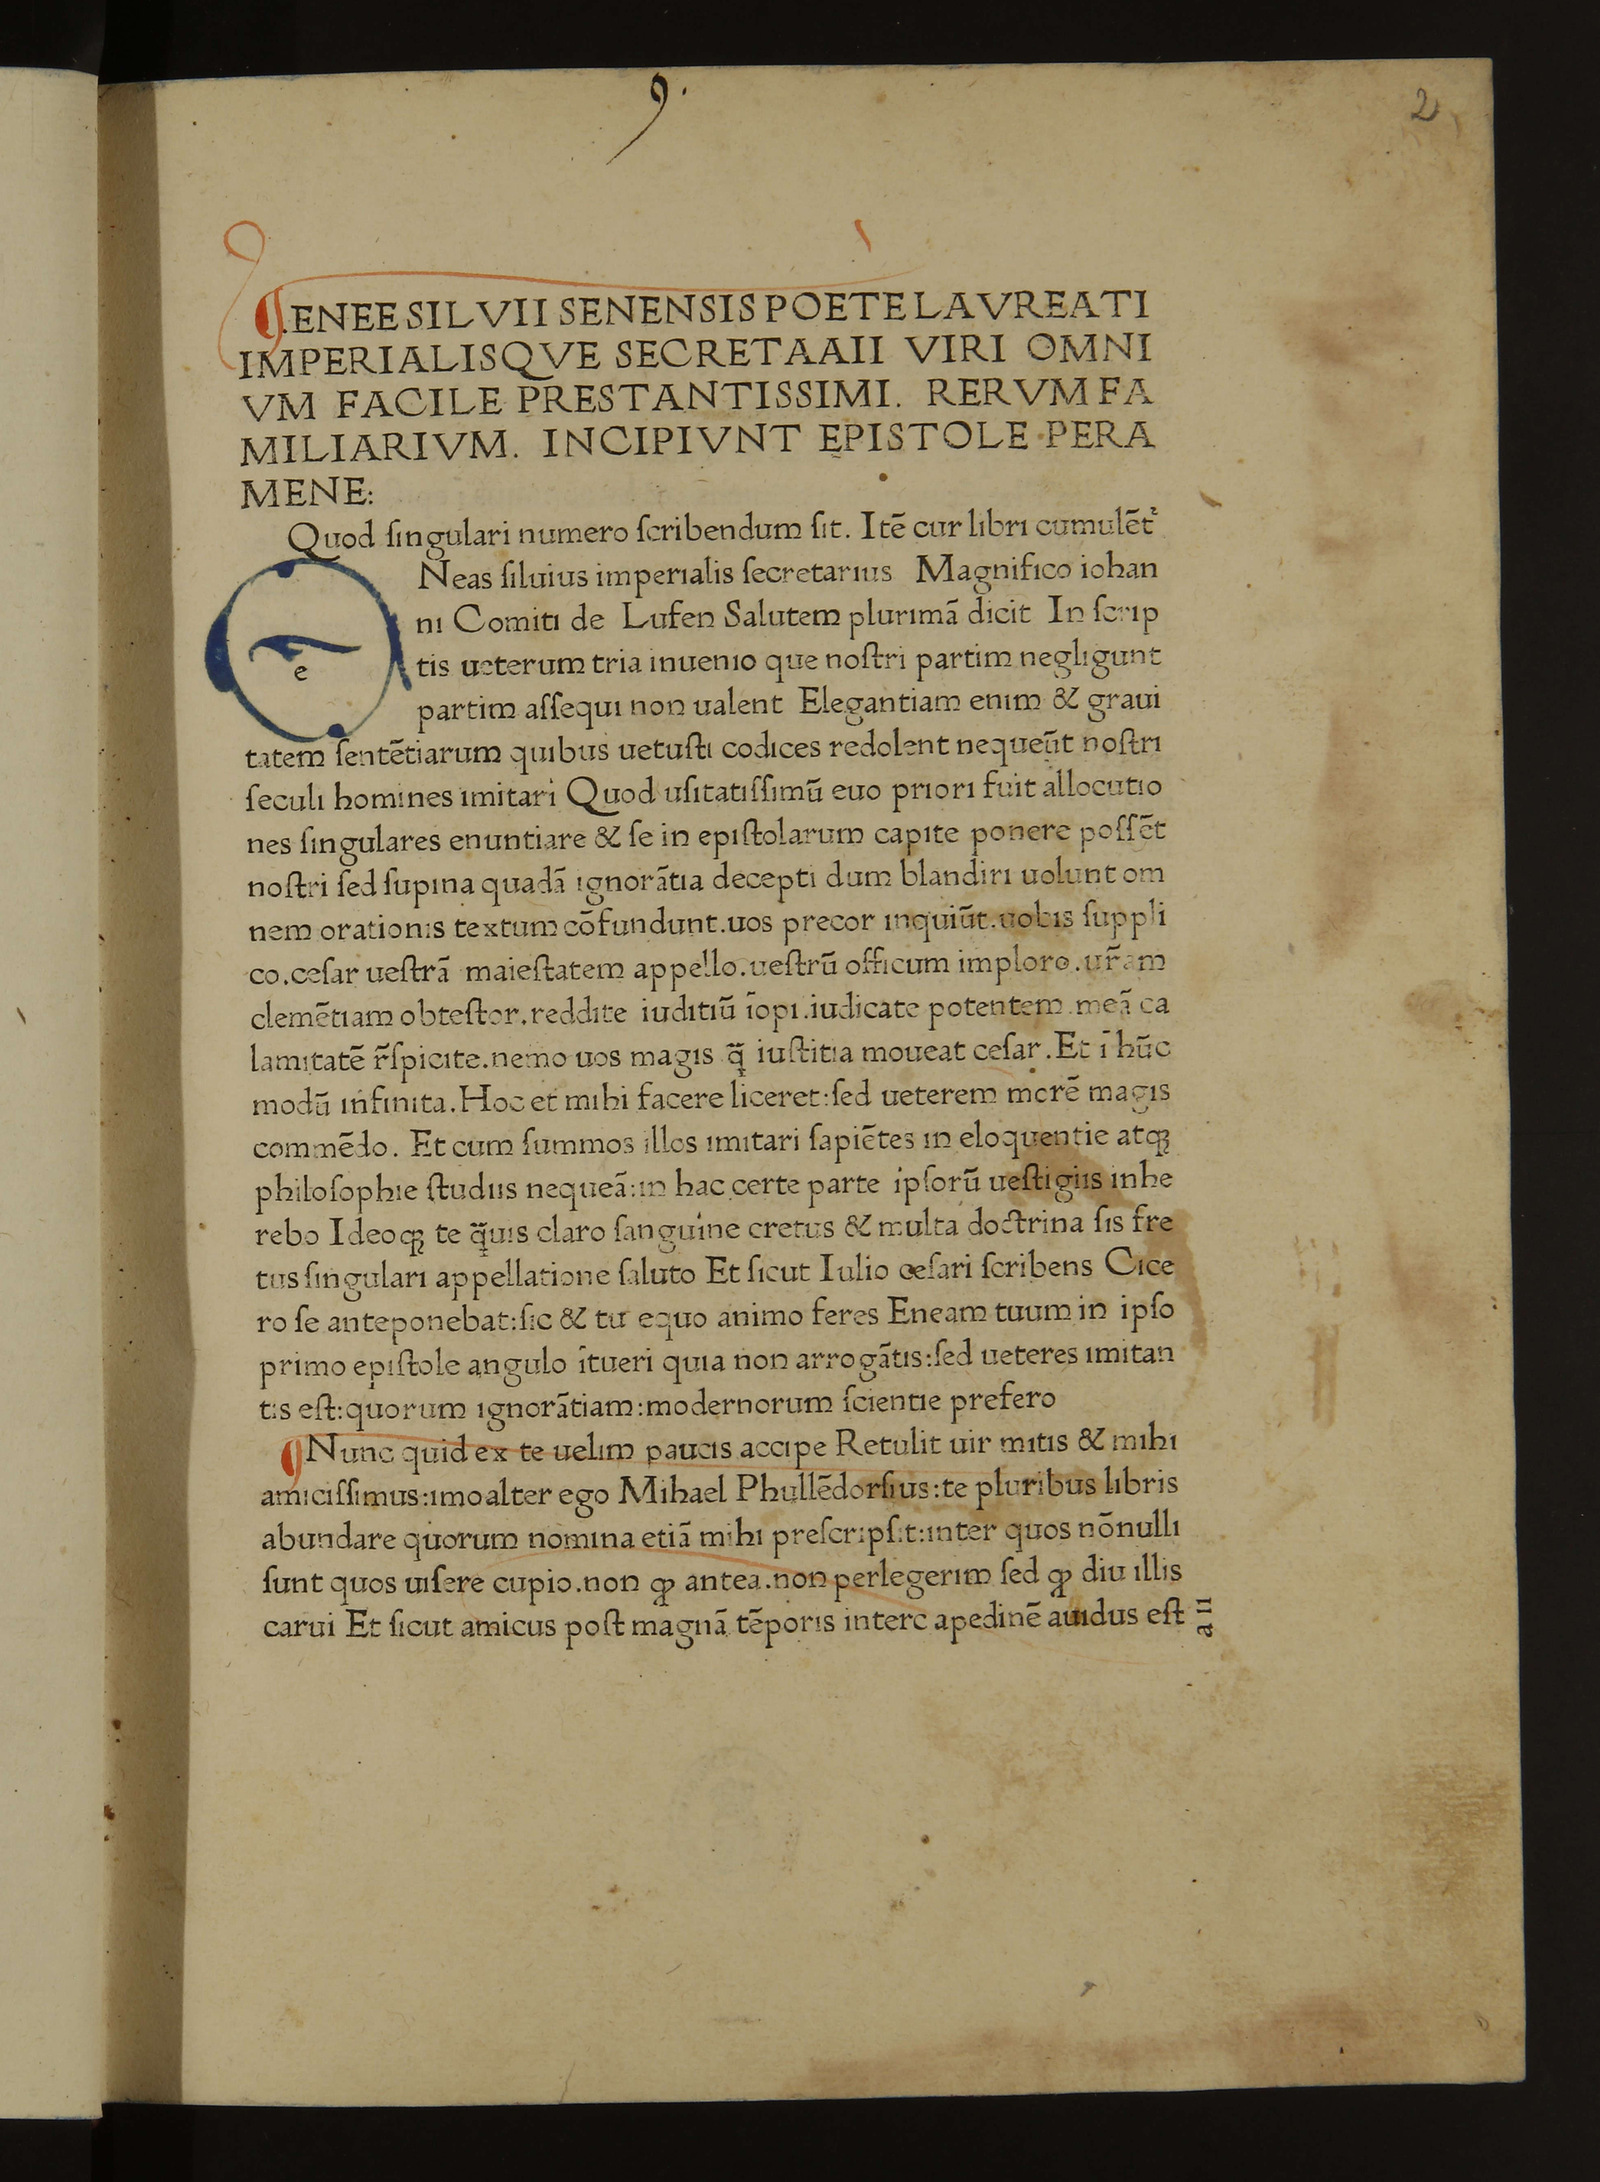 9.
2
ENEE SILVII SENENSIS POETE LAVREATI
IMPERIALISQVE SECRETAAII VIRI OMNI
VM FACILE PRESTANTISSIMI. RERVM FA
MILIARIVM. INCIPIVNT EPISTOLE PERA
MENE:
Quod ſingulari numero ſcribendum ſit. Itē cur libri cumulēt᷑
e Neas ſiluius imperialis ſecretarius Magnifico iohan
ni Comiti de Lufen Salutem plurimā dicit In ſcrip
tis ueterum tria inuenio que noſtri partim negligunt
partim aſſequi non ualent Elegantiam enim & graui
tatem ſentētiarum quibus uetuſti codices redolent nequeūt noſtri
ſeculi homines imitari Quod uſitatiſſimū euo priori fuit allocutio
nes ſingulares enuntiare & ſe in epiſtolarum capite ponere poſſēt
noſtri ſed ſupina quadā ignorātia decepti dum blandiri uolunt om
nem orationis textum cōfundunt.uos precor inquiūt.uobis ſuppli
co.ceſar ueſtrā maieſtatem appello.ueſtrū officum imploro.ur̄am
clemētiam obteſtor.reddite iuditiū īopi.iudicate potentem.meā ca
lamitatē r̄ſpicite.nemo uos magis q̄̃ iuſtitia moueat ceſar.Et ī hūc
modū infinita.Hoc et mihi facere liceret:ſed ueterem morē magis
commēdo. Et cum ſummos illos imitari ſapiētes in eloquentie atqꝫ
philoſophie ſtudiis nequeā:in hac certe parte ipſorū ueſtigiis inhe
rebo Ideoqꝫ te q̄̃uis claro ſanguine cretus & multa doctrina ſis fre
tus ſingulari appellatione ſaluto Et ſicut Iulio ceſari ſcribens Cice
ro ſe anteponebat:ſic & tu equo animo feres Eneam tuum in ipſo
primo epiſtole angulo ītueri quia non arrogātis:ſed ueteres imitan
tis eſt:quorum ignorātiam:modernorum ſcientie prefero
Nunc quid ex te uelim paucis accipe Retulit uir mitis & mihi
amiciſſimus:imo alter ego Mihael Phullēdorſius:te pluribus libris
abundare quorum nomina etiā mihi preſcripſit:inter quos nōnulli
ſunt quos uiſere cupio.non ꝙ antea.non perlegerim ſed ꝙ diu illis
carui Et ſicut amicus poſt magnā tēporis interc apedinē auidus eſt
aii